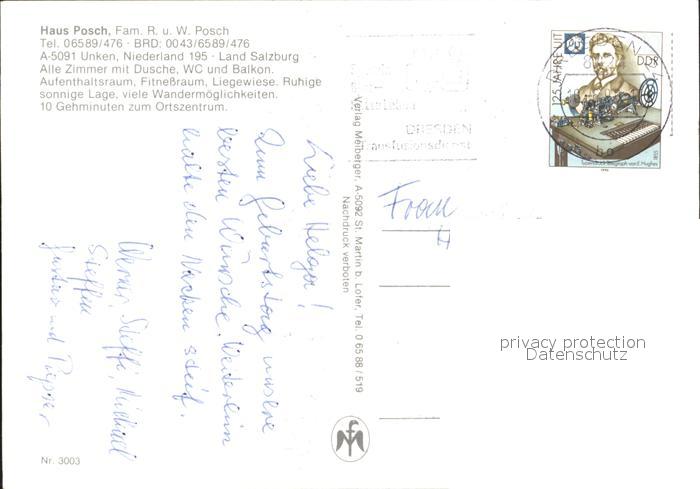 Haus Posch, Fam. R. u. W. Posch
Tel. 06589/476 · BRD: 0043/6589/476
A-5091 Unken, Niederland 195 · Land Salzburg
Alle Zimmer mit Dusche, WC und Balkon.
Aufenthaltsraum, Fitneßraum, Liegewiese. Ruhige
sonnige Lage, viele Wandermöglichkeiten.
10 Gehminuten zum Ortszentrum.
Liebe Helga!
Zum Geburtstag unsere
besten Wünsche. Weiterhin
halte den Nacken steif.
Werner, Steffi, Michael
Steffen
und
Nr. 3003
Verlag Meiberger, A-5092 St. Martin b. Lofer, Tel. 0 65 88 / 519
Nachdruck verboten
DRESDEN
Transfusionsdienst
125 JAHRE UIT
DDR
25
1990
Frau
privacy protection
Datenschutz